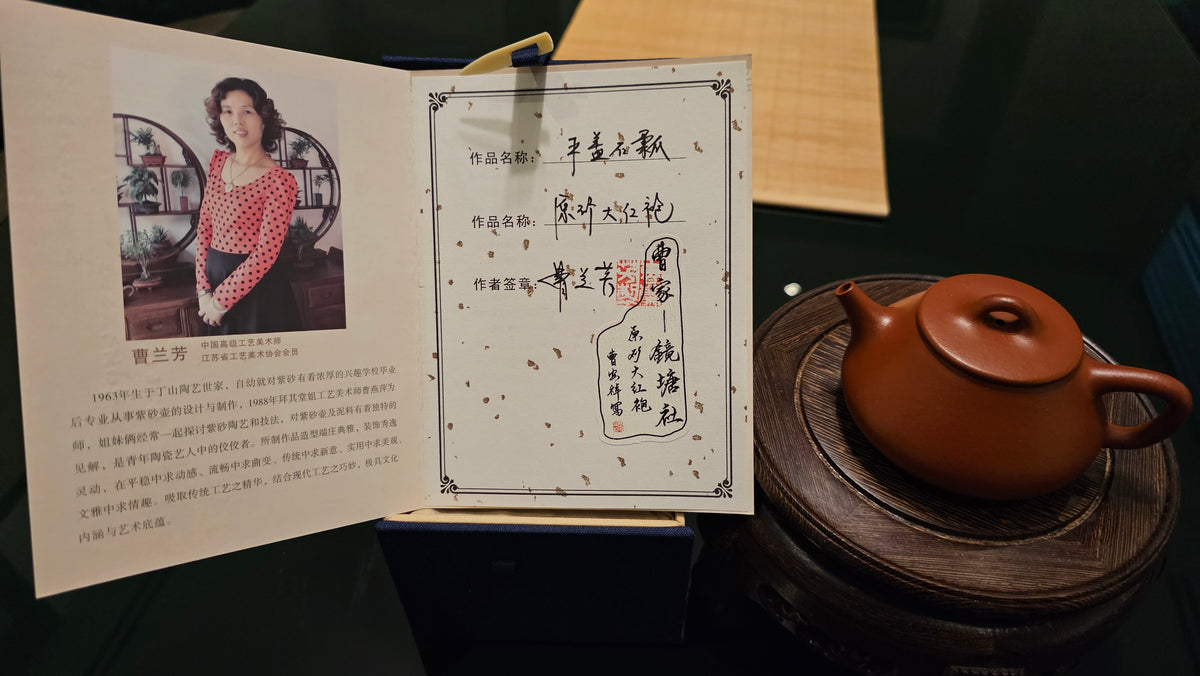 曹兰芳
中国高级工艺美术师
江苏省工艺美术协会会员
1963年生于丁山陶艺世家，自幼就对紫砂有着浓厚的兴趣学校毕业
后专业从事紫砂壶的设计与制作，1988年拜其堂姐工艺美术师曹燕萍为
师，姐妹俩经常一起探讨紫砂陶艺和技法，对紫砂壶及泥料有着独特的
见解，是青年陶瓷艺人中的佼佼者。所制作品造型端庄典雅，装饰秀逸
灵动，在平稳中求动感、流畅中求曲变、传统中求新意、实用中求美观、
文雅中求情趣。吸取传统工艺之精华，结合现代工艺之巧妙，极具文化
内涵与艺术底蕴。
作品名称：平盖石瓢
作品名称：原矿大红袍
作者签章：曹兰芳
曹家一镜塘社
原矿大红袍